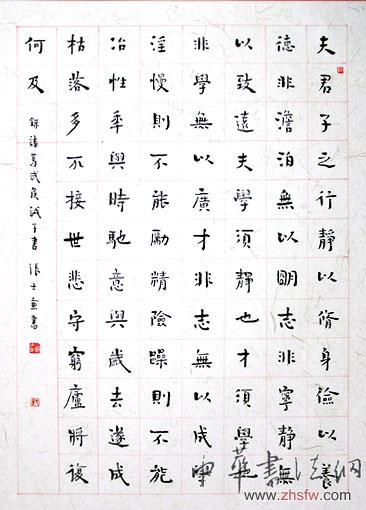 夫君子之行靜以脩身儉以養
德非澹泊無以明志非寧靜無
以致遠夫學須靜也才須學
非學無以廣才非志無以成學
淫慢則不能勵精險躁則不能
冶性年與時馳意與歲去遂成
枯落多不接世悲守窮廬將復
何及
錄諸葛武侯誡子書 張士 書
中華書法網
www.zhsfw.com